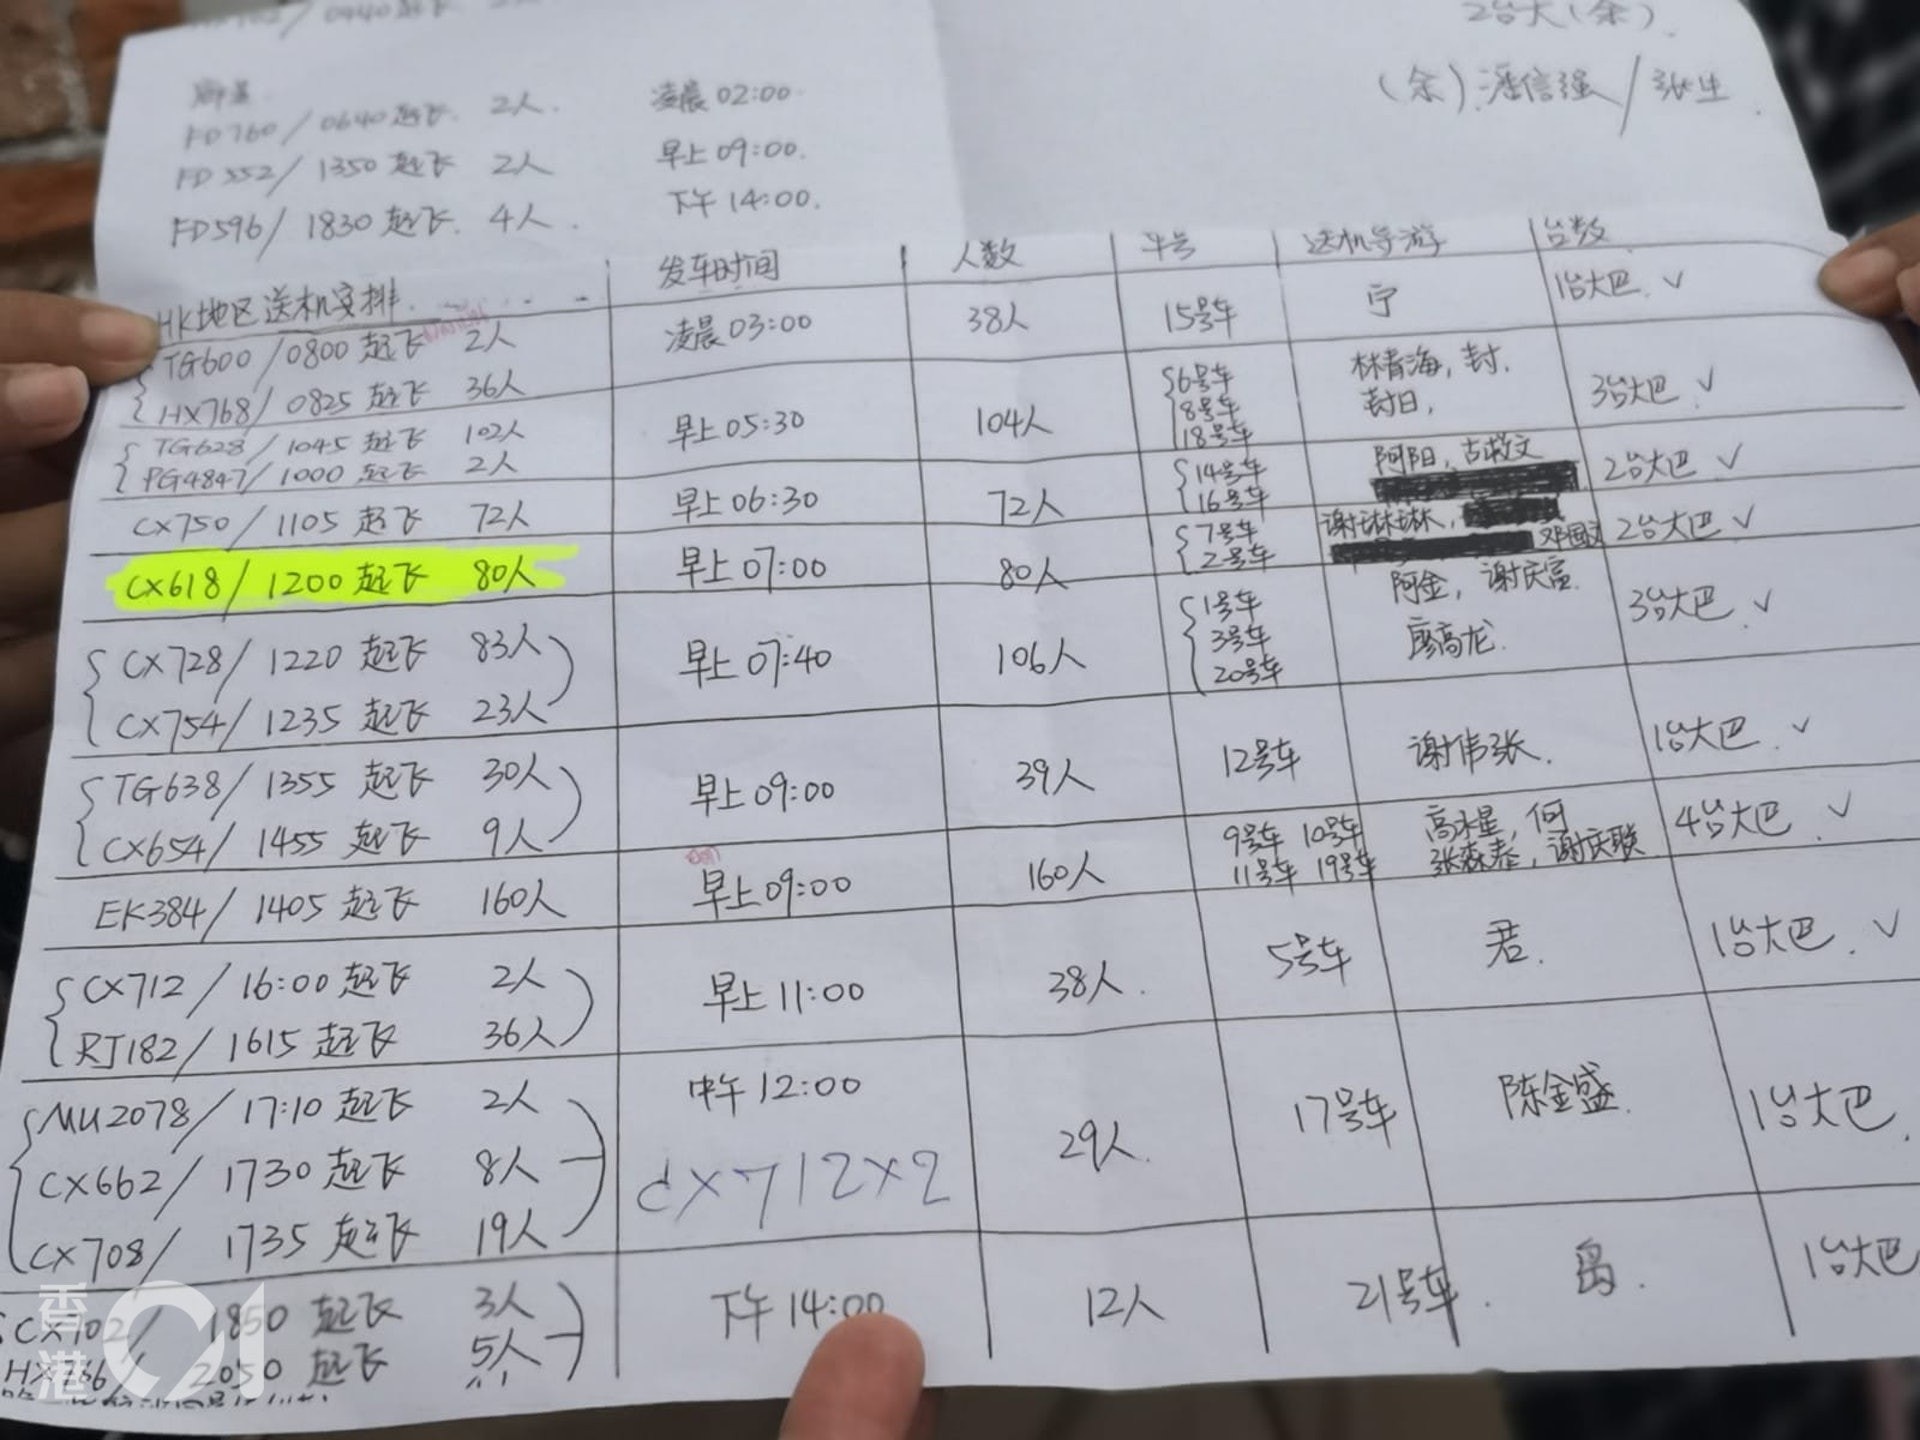 2台大(余).
(余).潘信强/张生
FD760/0640起飞. 2人. 凌晨02:00
FD552/1350起飞 2人 早上09:00.
FD596/1830起飞. 4人. 下午14:00.
HK地区送机安排. 发车时间 人数 车号 送机导游 台数
TG600/0800起飞 2人
HX768/0825起飞 36人
凌晨03:00 38人 15号车 宁 1台大巴. ✓
TG628/1045起飞 102人
PG4847/1000起飞 2人
早上05:30 104人
6号车
8号车
18号车
林青海, 封.
封日,
3台大巴. ✓
CX750/1105起飞 72人 早上06:30 72人
14号车
16号车
阿阳,
2台大巴 ✓
CX618/1200起飞 80人 早上07:00 80人
7号车
2号车
谢琳琳,
2台大巴 ✓
CX728/1220起飞 83人
CX754/1235起飞 23人
早上07:40 106人
1号车
3号车
20号车
阿金, 谢庆富.
廖高龙.
3台大巴. ✓
TG638/1355起飞 30人
CX654/1455起飞 9人
早上09:00 39人 12号车 谢伟张. 1台大巴. ✓
EK384/1405起飞 160人 早上09:00 160人
9号车 10号车
11号车 19号车
高水星, 何
张森泰, 谢庆联
4台大巴. ✓
CX712/16:00起飞 2人
RJ182/1615起飞 36人
早上11:00 38人. 5号车 君. 1台大巴. ✓
MU2078/17:10起飞 2人
CX662/1730起飞 8人
CX708/1735起飞 19人
中午12:00 29人. 17号车 陈金盛. 1台大巴.
CX712X2
CX702/1850起飞 3人
HX766/2050起飞 5人
下午14:00 12人 21号车. 1台大巴
香港01